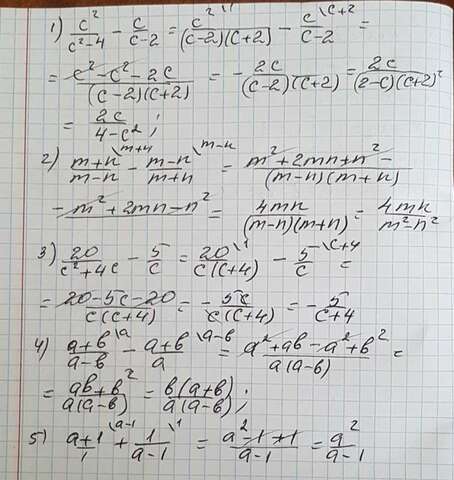 1) c²/(c²-4) - c/(c-2) = c² \1/((c-2)(c+2)) - c \c+2/(c-2) =
= (c²-c²-2c)/((c-2)(c+2)) = - 2c/((c-2)(c+2)) = 2c/((2-c)(c+2)) =
= 2c/(4-c²);
2) (m+n) \m+n/(m-n) - (m-n) \m-n/(m+n) = (m²+2mn+n²-)/((m-n)(m+n))
-m²+2mn-n² = 4mn/((m-n)(m+n)) = 4mn/(m²-n²)
3) 20/(c²+4c) - 5/c = 20 \1/(c(c+4)) - 5 \c+4/c =
= (20-5c-20)/(c(c+4)) = - 5c/(c(c+4)) = - 5/(c+4)
4) (a+b) \a/(a-b) - (a+b) \a-b/a = (a²+ab-a²+b²)/(a(a-b)) =
= (ab+b²)/(a(a-b)) = b(a+b)/(a(a-b));
5) (a+1) \a-1/1 + 1 \1/(a-1) = (a²-1+1)/(a-1) = a²/(a-1)